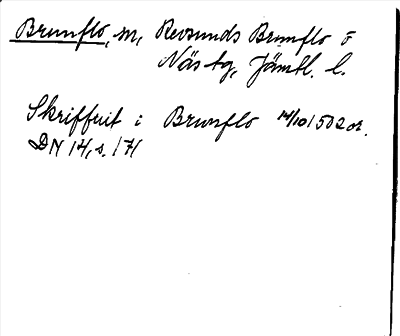 Brunflo, m, Revsunds Brunflo o
Näs tg, Jämtl. l.
Skriffuit i Brunflo 14/10 1502 or.
DN 14, s. 171